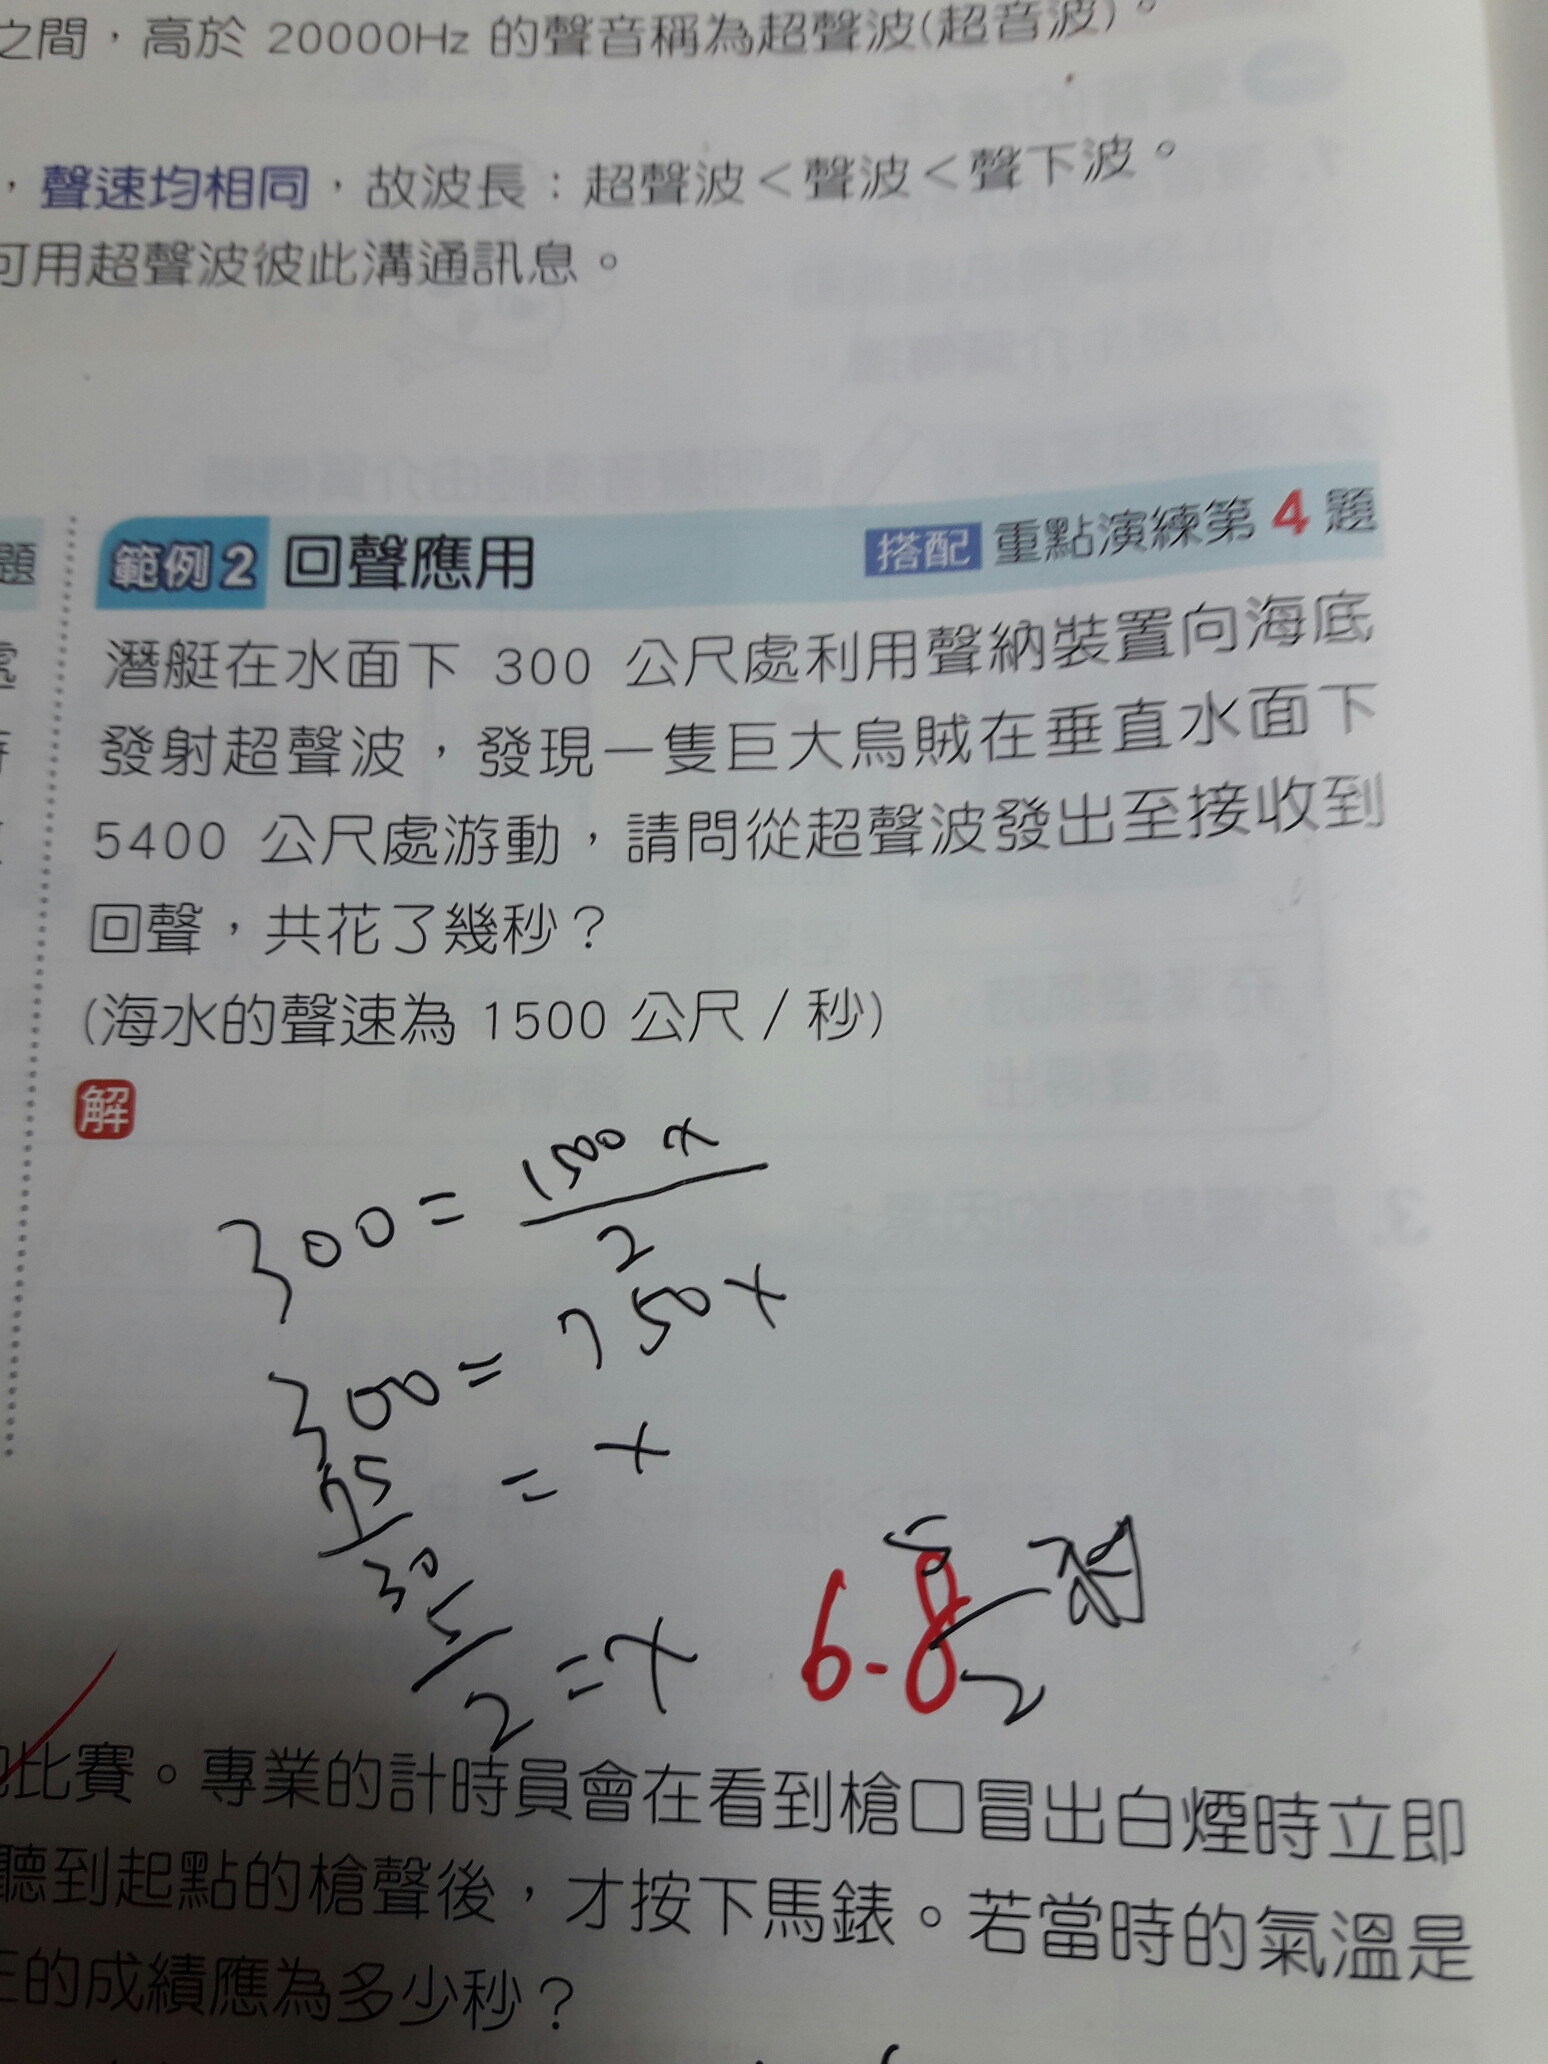 之間，高於 20000Hz 的聲音稱為超聲波(超音波)。
，聲速均相同，故波長：超聲波＜聲波＜聲下波。
可用超聲波彼此溝通訊息。
題
範例2 回聲應用 搭配 重點演練第 4 題
潛艇在水面下 300 公尺處利用聲納裝置向海底
發射超聲波，發現一隻巨大烏賊在垂直水面下
5400 公尺處游動，請問從超聲波發出至接收到
回聲，共花了幾秒？
(海水的聲速為 1500 公尺／秒)
解
300 = 1500x / 2
300 = 750x
= x
2 = x
6.8
比賽。專業的計時員會在看到槍口冒出白煙時立即
聽到起點的槍聲後，才按下馬錶。若當時的氣溫是
的成績應為多少秒？